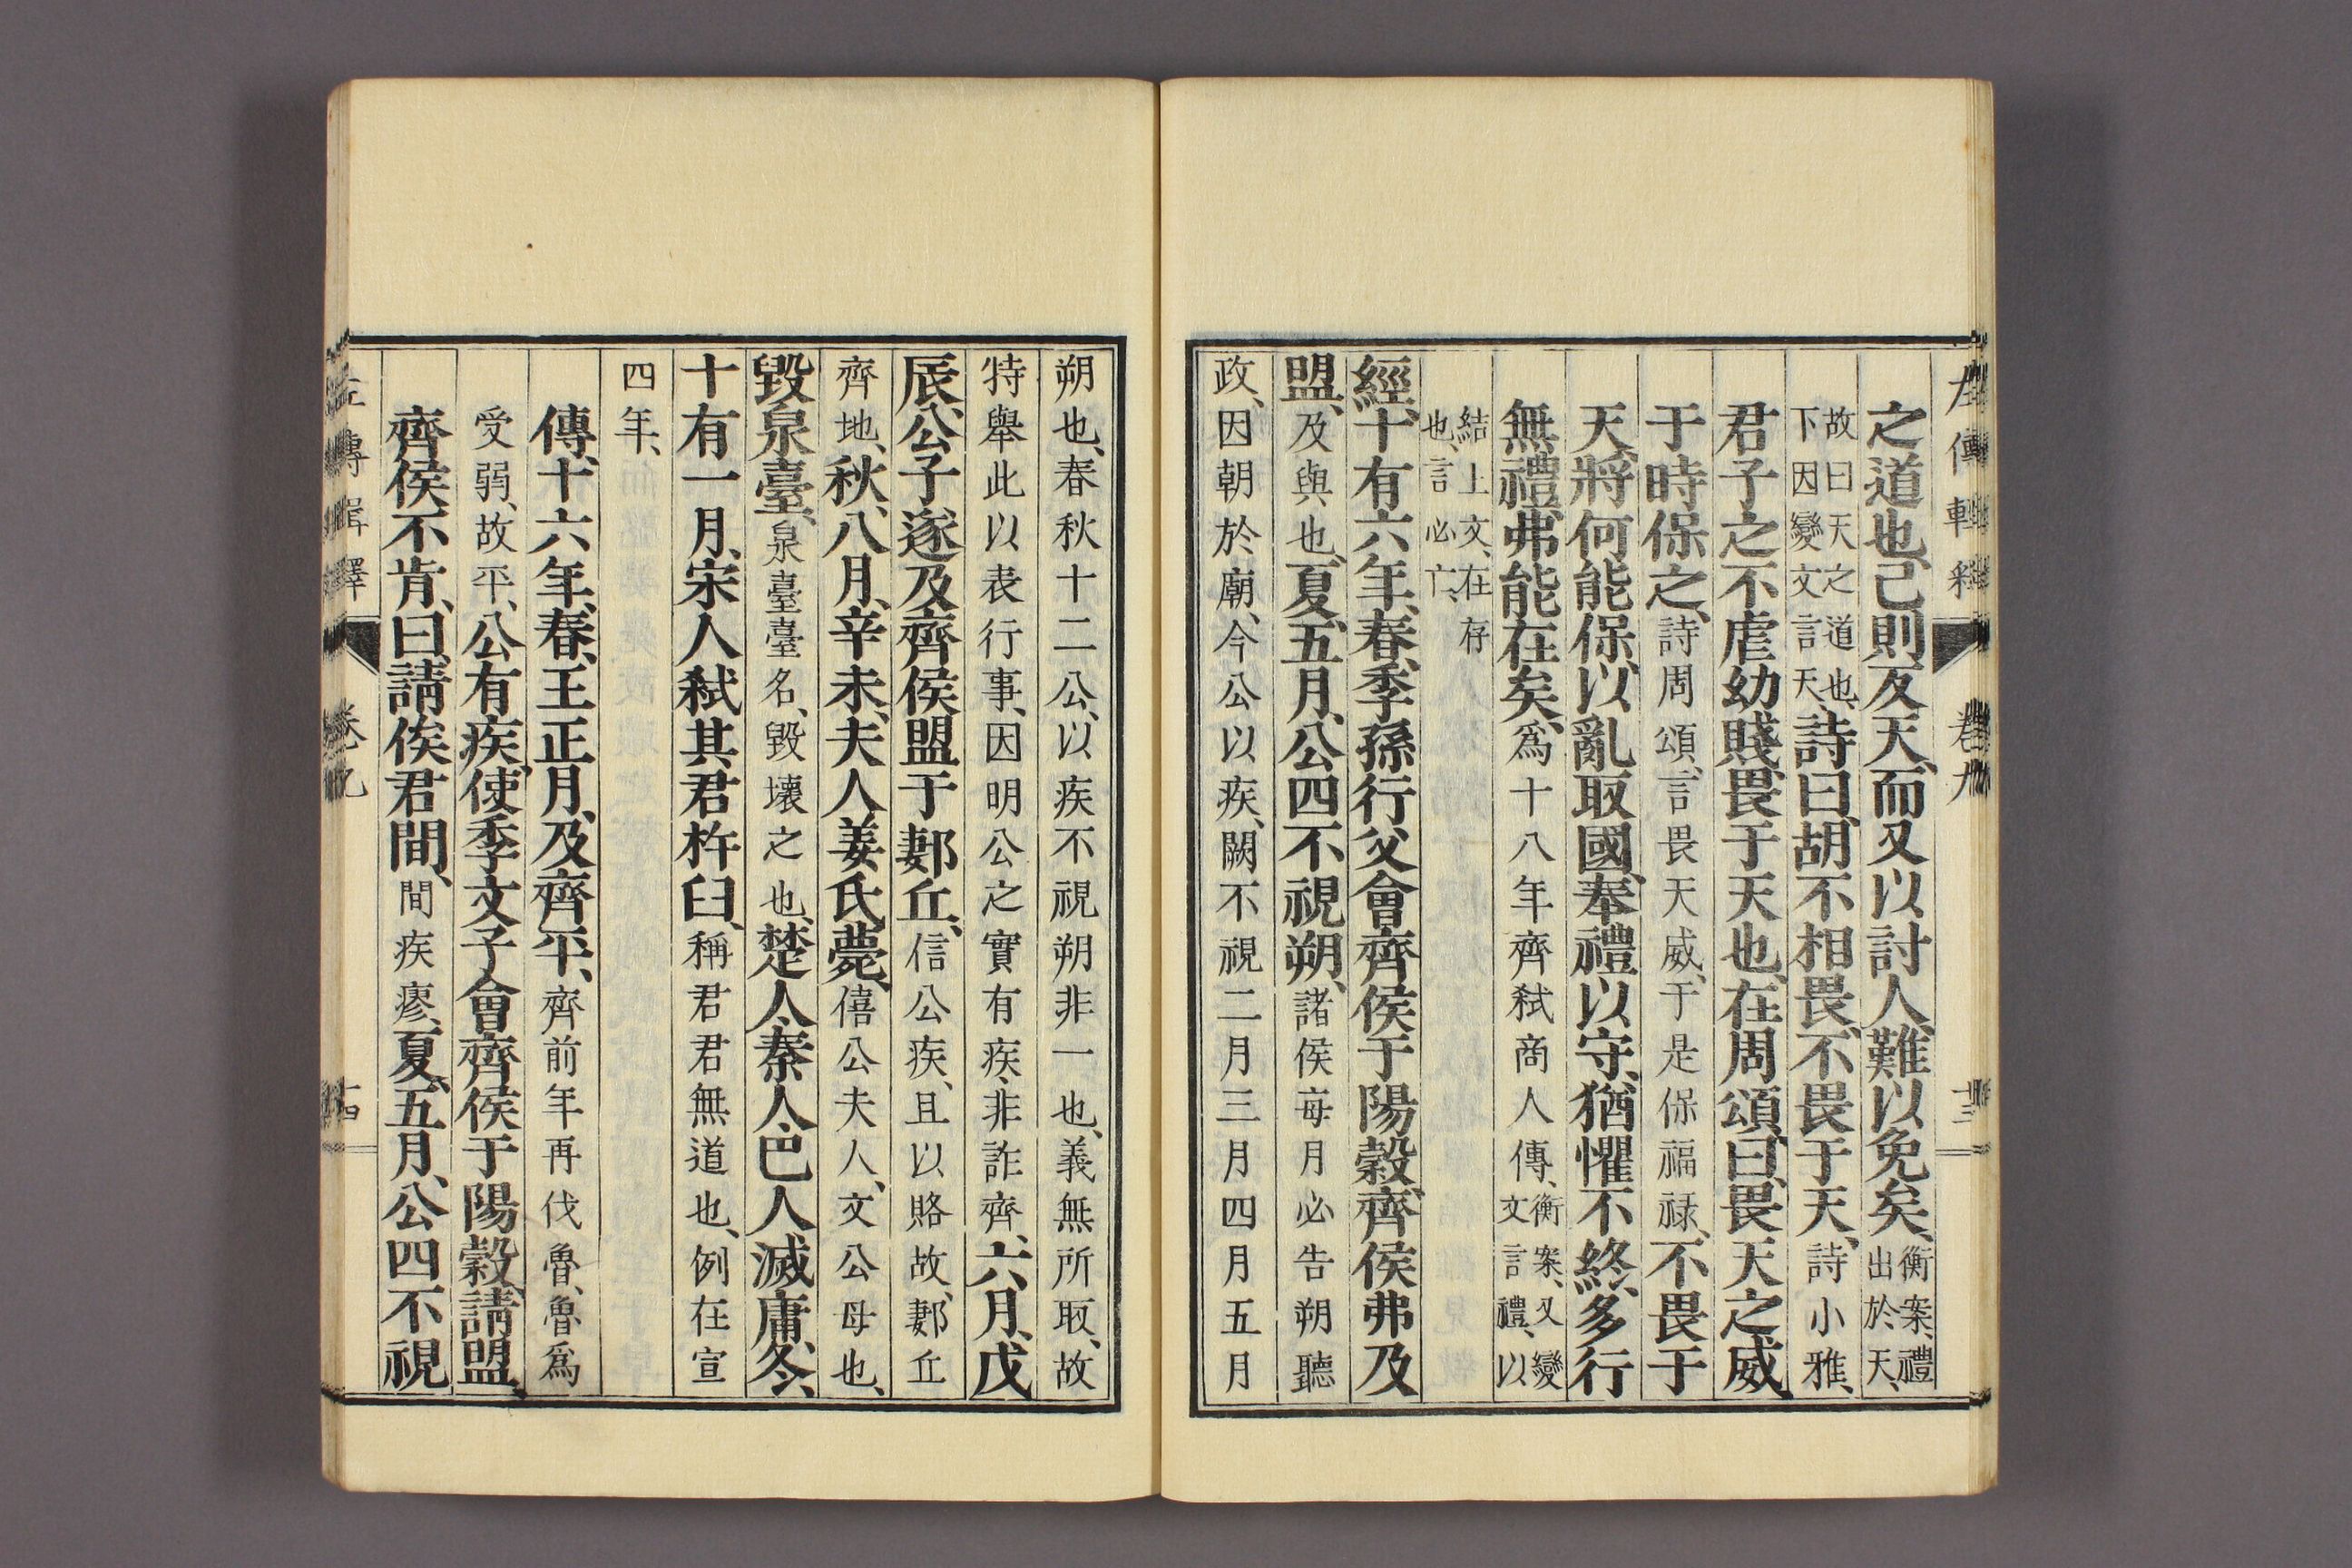 左傳輯釋 卷九 十三
之道也、己則反天、而又以討人、難以免矣、衡案、禮出於天、
故曰天之道也、下因變文言天、詩曰、胡不相畏、不畏于天、詩小雅、
君子之不虐幼賤、畏于天也、在周頌曰、畏天之威、
于時保之、詩周頌、言畏天威、于是保福祿、不畏于
天、將何能保、以亂取國、奉禮以守、猶懼不終、多行
無禮、弗能在矣、爲十八年齊弑商人傳、衡案、又變文言禮、以
結上文、在存也、言必亡、
經、十有六年、春、季孫行父會齊侯于陽穀、齊侯弗及
盟、及與也、夏、五月、公四不視朔、諸侯每月必告朔聽
政、因朝於廟、今公以疾、闕不視二月三月四月五月
朔也、春秋十二公、以疾不視朔非一也、義無所取、故
特舉此以表行事、因明公之實有疾、非詐齊、六月、戊
辰、公子遂及齊侯盟于郪丘、信公疾、且以賂故、郪丘
齊地、秋、八月、辛未、夫人姜氏薨、僖公夫人、文公母也、
毀泉臺、泉臺臺名、毀壞之也、楚人、秦人、巴人、滅庸、冬、
十有一月、宋人弑其君杵臼、稱君君無道也、例在宣
四年、
傳、十六年、春、王正月、及齊平、齊前年再伐魯、魯爲
受弱、故平、公有疾、使季文子會齊侯于陽穀、請盟、
齊侯不肯、曰、請俟君間、間疾瘳、夏、五月、公四不視
左傳輯釋 卷九 十四